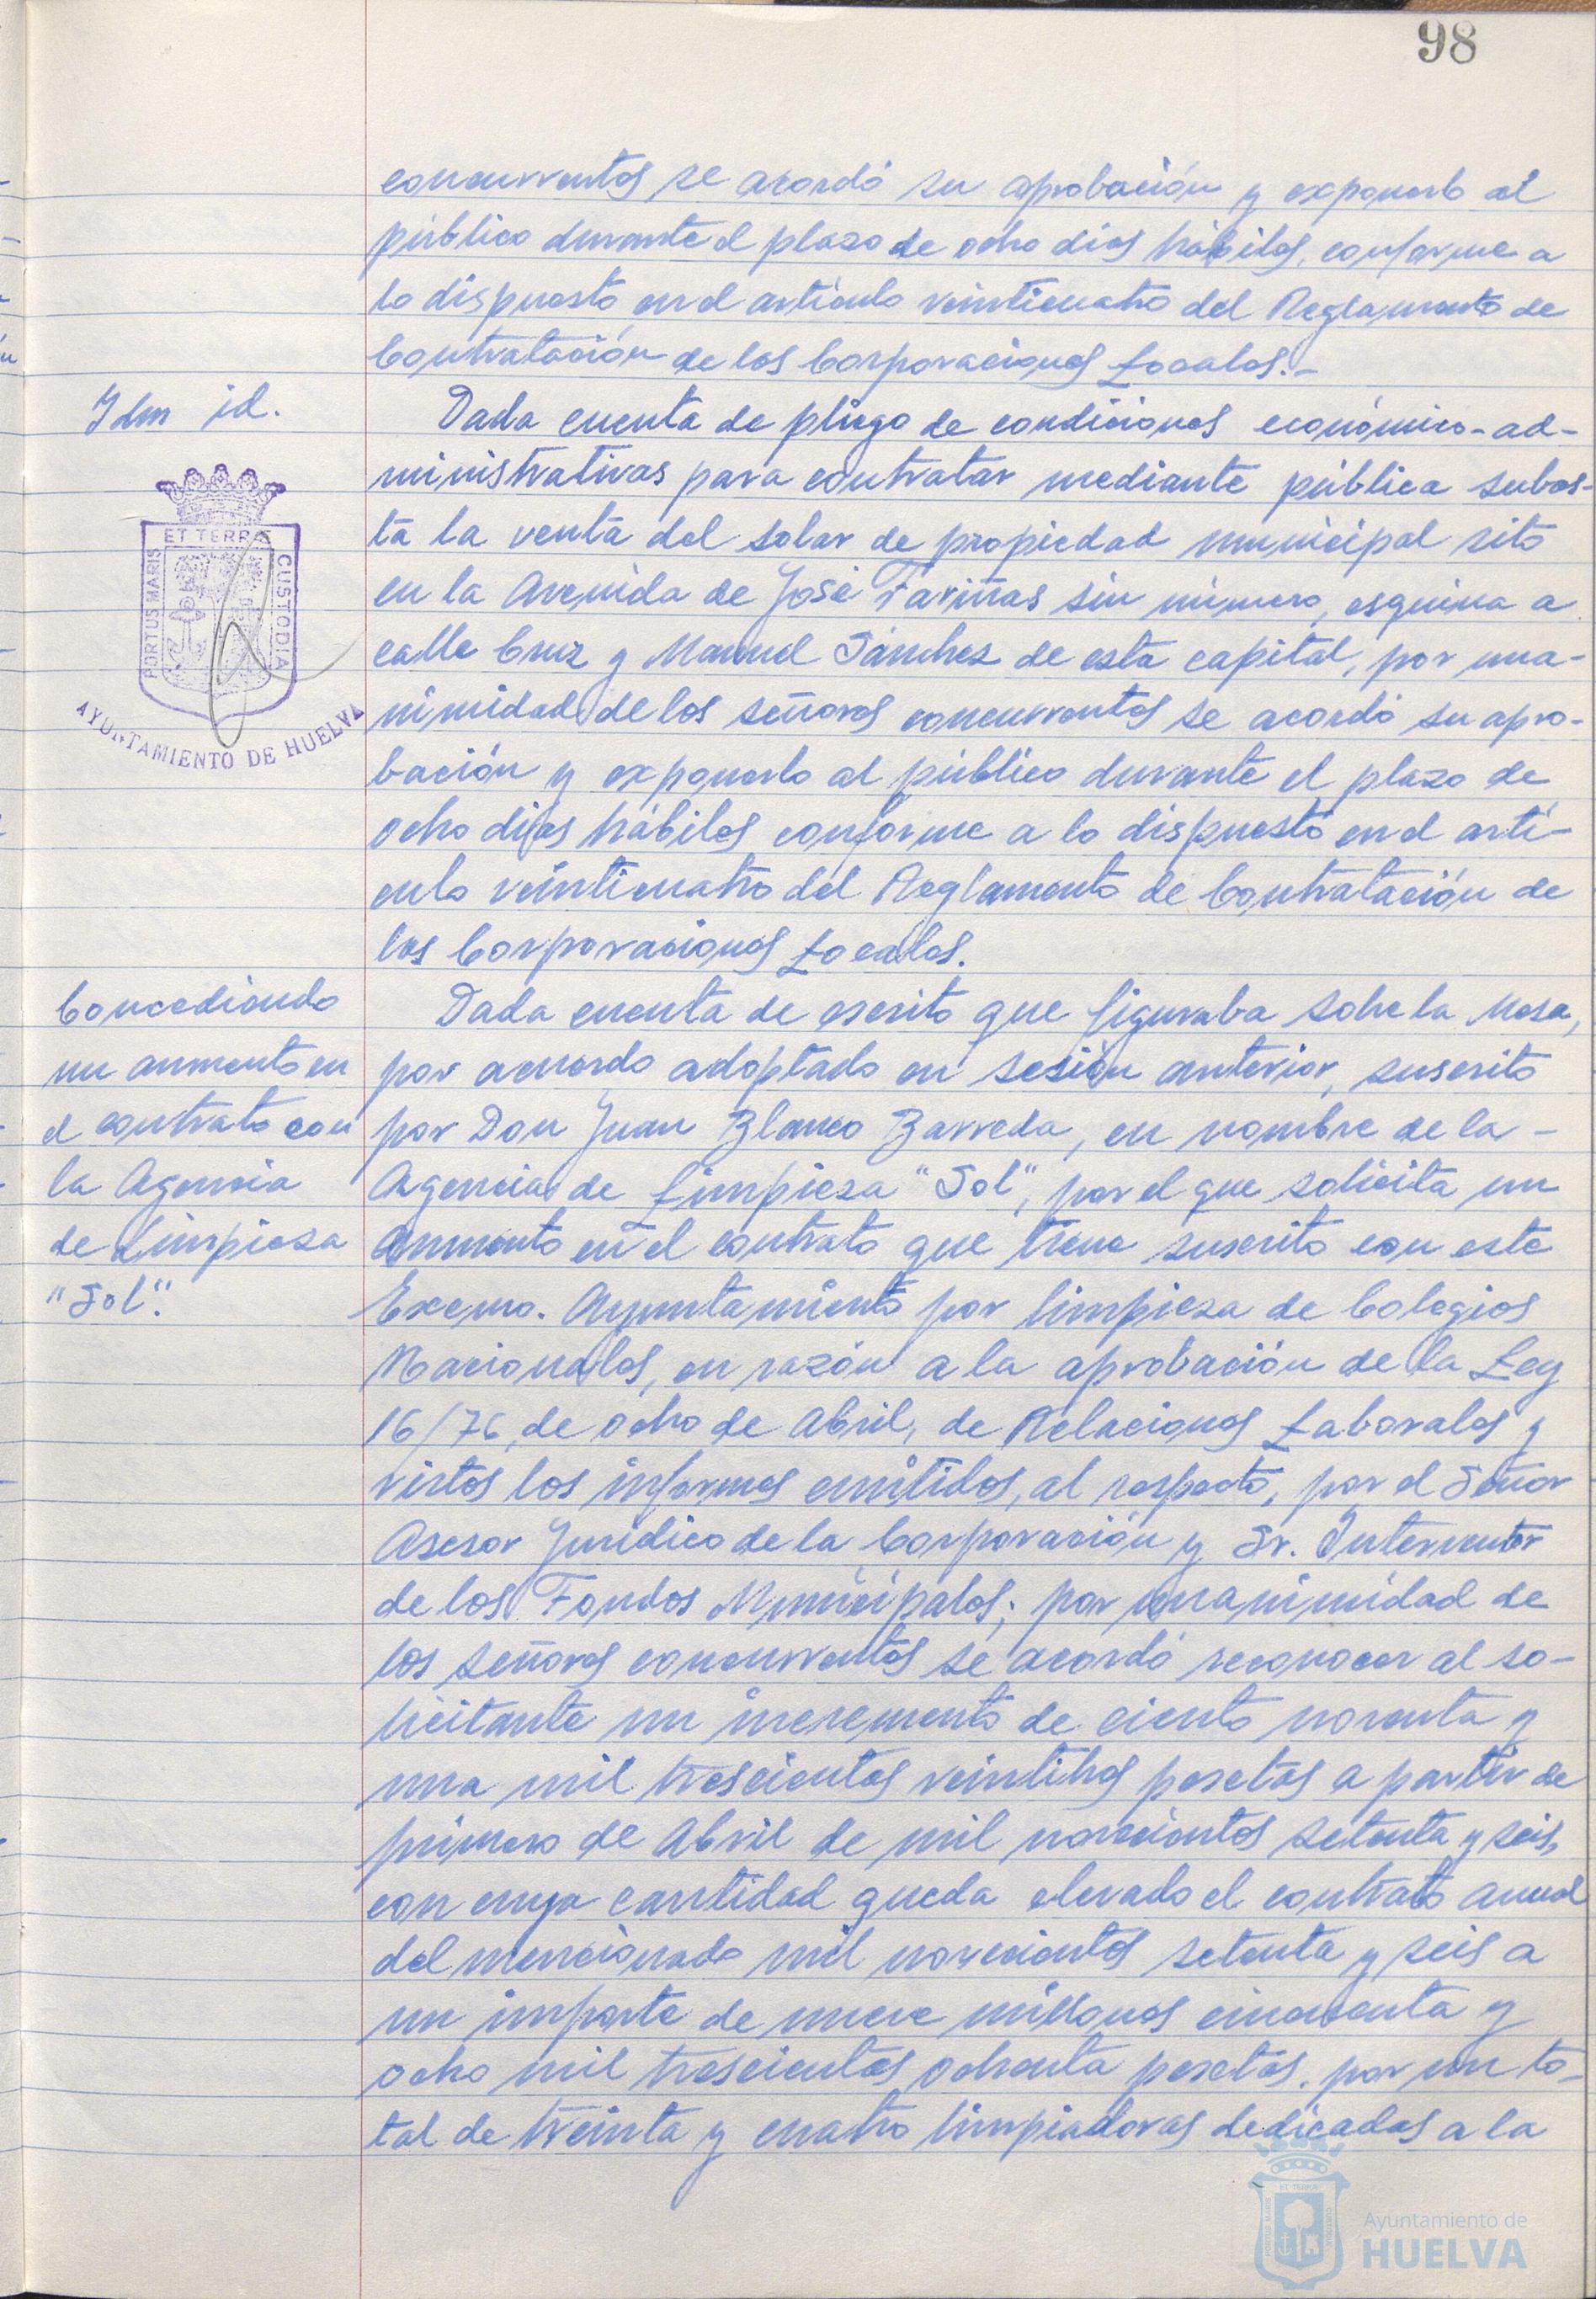 98
concurrentes se acordó su aprobación y exponerlo al
público durante el plazo de ocho días hábiles, conforme a
lo dispuesto en el artículo veinticuatro del Reglamento de
Contratación de las Corporaciones Locales.-
Idem id.
Dada cuenta de pliego de condiciones económico-ad-
ministrativas para contratar mediante pública subas-
ta la venta del solar de propiedad municipal sito
en la Avenida de José Fariñas sin número, esquina a
calle Cruz y Manuel Sánchez de esta capital, por una-
nimidad de los señores concurrentes se acordó su apro-
bación y exponerlo al público durante el plazo de
ocho días hábiles conforme a lo dispuesto en el artí-
culo veinticuatro del Reglamento de Contratación de
las Corporaciones Locales.
ET TERRE
PORTUS MARIS
CUSTODIA
AYUNTAMIENTO DE HUELVA
Concediendo
un aumento en
el contrato con
la Agencia
de Limpieza
"Sol".
Dada cuenta de escrito que figuraba sobre la Mesa,
por acuerdo adoptado en sesión anterior, suscrito
por Don Juan Blanco Barreda, en nombre de la -
Agencia de Limpieza "Sol", por el que solicita un
aumento en el contrato que tiene suscrito con este
Excmo. Ayuntamiento por limpieza de Colegios
Nacionales, en razón a la aprobación de la Ley
16/76, de ocho de Abril, de Relaciones Laborales y
vistos los informes emitidos, al respecto, por el Señor
Asesor Jurídico de la Corporación y Sr. Interventor
de los Fondos Municipales; por unanimidad de
los señores concurrentes se acordó reconocer al so-
licitante un incremento de ciento noventa y
una mil trescientas veintitres pesetas a partir de
primero de Abril de mil novecientos setenta y seis,
con cuya cantidad queda elevado el contrato anual
del mencionado mil novecientos setenta y seis a
un importe de nueve millones cincuenta y
ocho mil trescientas ochenta pesetas, por un to-
tal de treinta y cuatro limpiadoras dedicadas a la
Ayuntamiento de
HUELVA